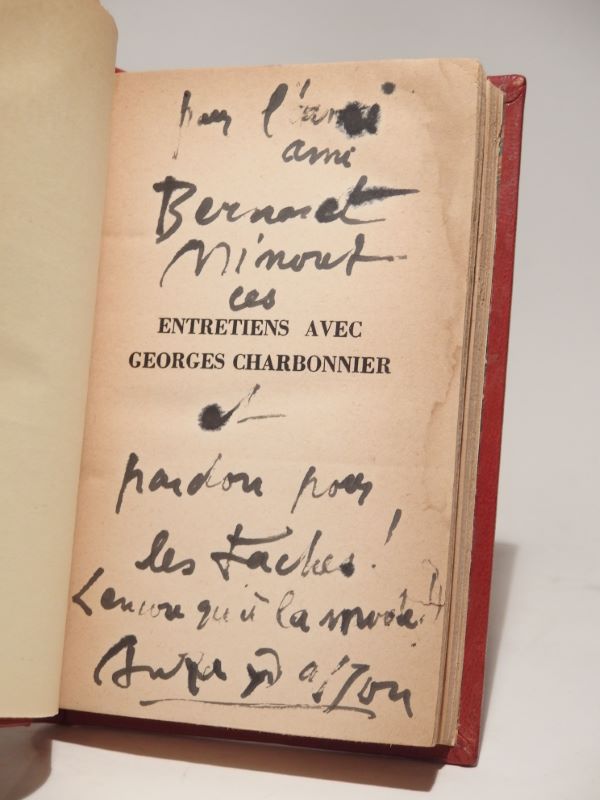 pour l'ami
ami
Bernard
Minoret
ces
ENTRETIENS AVEC
GEORGES CHARBONNIER
et
pardon pour
les taches!
(encore qu'à la mode!)
André Masson